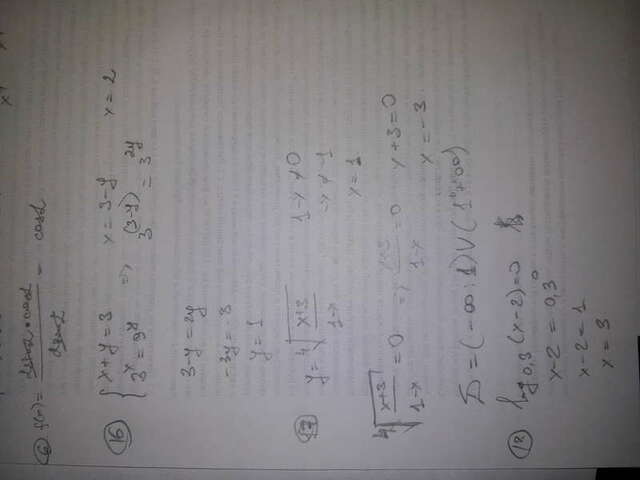 ⑥ f(α) = 2sinα·cosα / 2sinα = cosα
⑯ { x+y=3 x=3-y x=2
3^x=9^y => 3^(3-y) = 3^2y
3-y=2y
-3y=-3
y=1
⑰ y=⁴√(x+3 / 1-x) 1-x≠0
-x≠-1
x=1
⁴√(x+3 / 1-x) =0 => x+3 / 1-x =0 x+3=0
x=-3
D=(-∞;1)∪(1;+∞)
⑱ log 0,3 (x-2)=0
x-2=0,3⁰
x-2=1
x=3